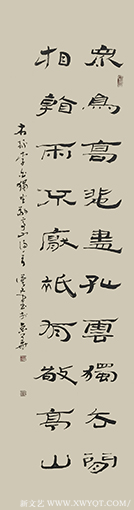 衆鳥高飛盡孤雲獨去閒
相看兩不厭祇有敬亭山
李白獨坐敬亭山
新文艺 WWW.XWYQT.COM